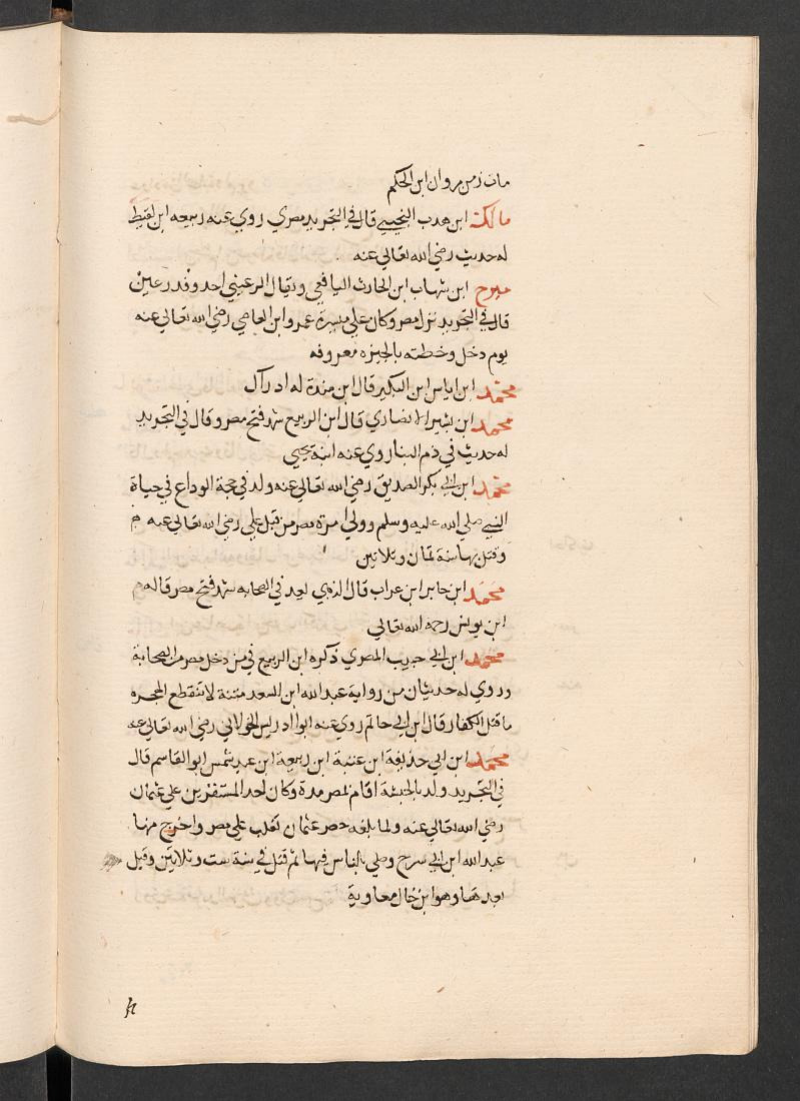 مات زمن مروان ابن الحكم
مالك ابن هدب التجيبي قال في التجريد مصري روي عنه ربيعه ابن لقيط
له حديث رضي الله تعالي عنه
مبرح ابن شهاب ابن الحارث اليافعي ويقال الرعيني احد وفد رعين
قال في التجريد نزل مصر وكان علي ميسرة عمرو ابن العاصي رضي الله تعالي عنه
يوم دخل وخطته بالجيزه معروفه
محمد ابن اياس ابن البكير قال ابن مندة له ادراك
محمد ابن بشير الانصاري قال ابن الربيع شهد فتح مصر وقال في التجريد
له حديث في ذم البنا روي عنه ابنه يحيي
محمد ابن ابي بكر الصديق رضي الله تعالي عنه ولد في حجة الوداع في حياة
النبي صلي الله عليه وسلم وولي امرة مصر من قبل علي رضي الله تعالي عنه
وقتل بها سنة ثمان وثلاثين
محمد ابن جابر ابن عراب قال الذهبي يعد في الصحابه شهد فتح مصر قاله
ابن يونس رحمه الله تعالي
محمد ابن ابي حبيب المصري ذكره ابن الربيع في من دخل مصر من الصحابة
وروي له حديثان من رواية عبد الله ابن السعدي متنه لا تنقطع الهجره
ما قتل الكفار قال ابن ابي حاتم روي عنه ابوا ادريس الخولاني رضي الله تعالي عنه
محمد ابن ابي حذيفة ابن عتبة ابن ربيعة ابن عبد شمس ابو القاسم قال
في التجريد ولد بالحبشة اقام بمصر مدة وكان احد المستنفرين علي عثمان
رضي الله تعالي عنه ولما بلغه حصر عثمان تغلب علي مصر واخرج منها
عبد الله ابن ابي سرح وصلي بالناس فيها ثم قتل في سنة ست وثلاثين وقيل
بعدها وهو ابن خال معاوية